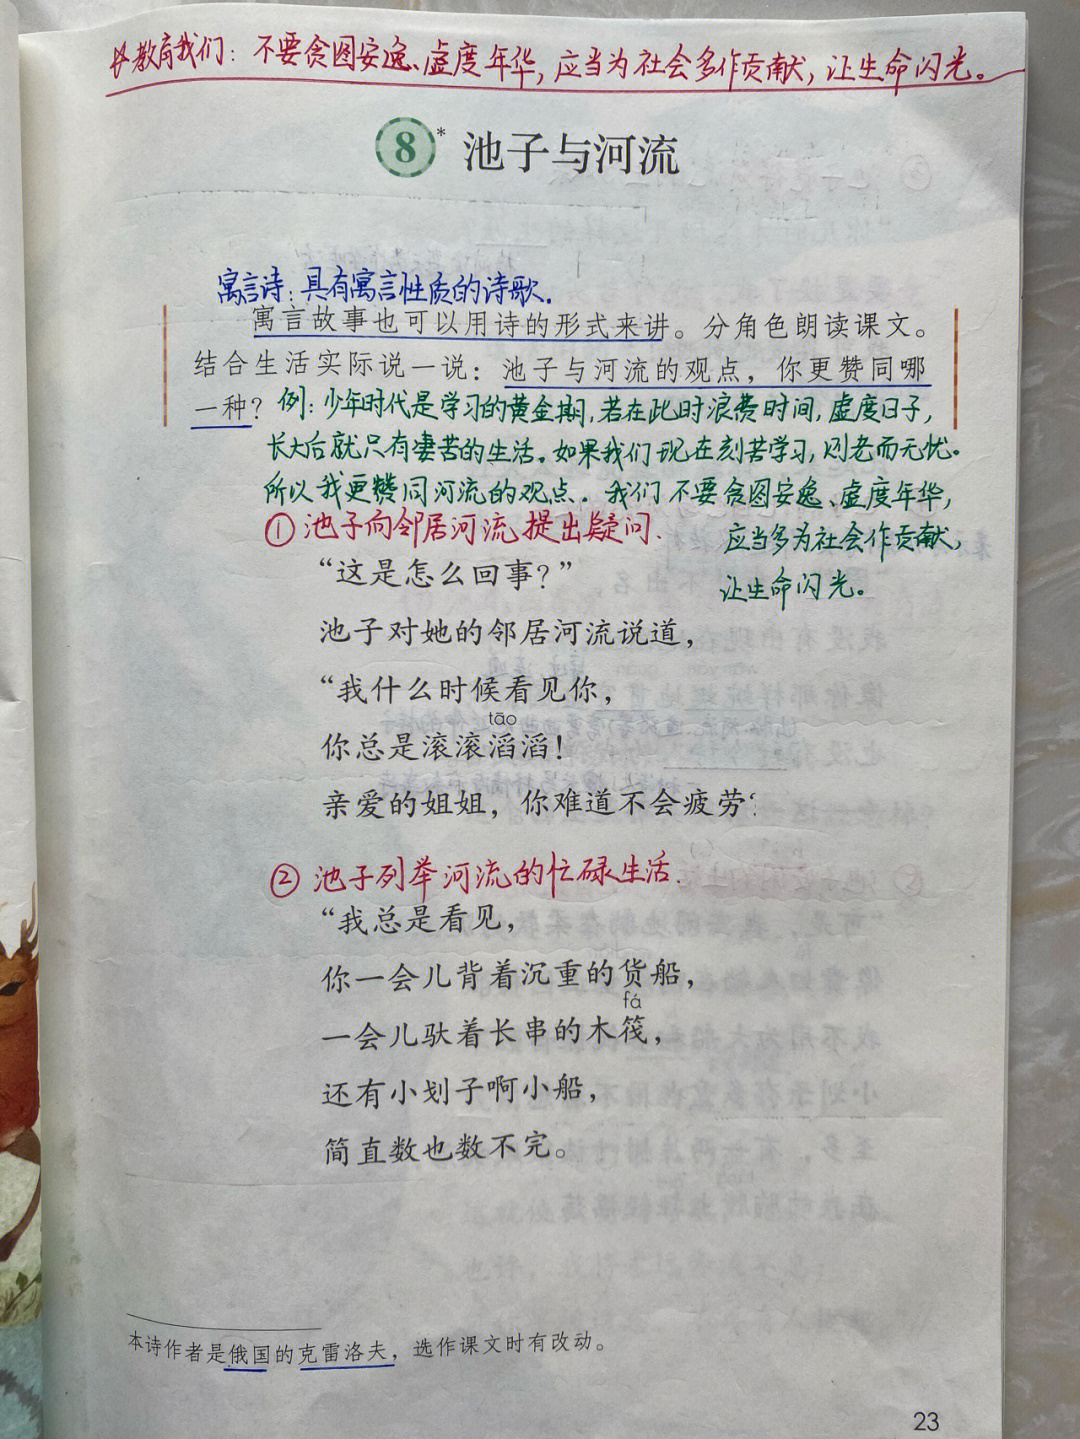 教育我们：不要贪图安逸、虚度年华，应当为社会多作贡献，让生命闪光。
8* 池子与河流
寓言诗：具有寓言性质的诗歌.
寓言故事也可以用诗的形式来讲。分角色朗读课文。
结合生活实际说一说：池子与河流的观点，你更赞同哪
一种？
例：少年时代是学习的黄金期，若在此时浪费时间，虚度日子，
长大后就只有凄苦的生活。如果我们现在刻苦学习，则老而无忧。
所以我更赞同河流的观点. 我们不要贪图安逸、虚度年华，
应当多为社会作贡献，
让生命闪光。
① 池子向邻居河流提出疑问.
“这是怎么回事？”
池子对她的邻居河流说道，
“我什么时候看见你，
tāo
你总是滚滚滔滔！
亲爱的姐姐，你难道不会疲劳？
② 池子列举河流的忙碌生活.
“我总是看见，
你一会儿背着沉重的货船，
fá
一会儿驮着长串的木筏，
还有小划子啊小船，
简直数也数不完。
本诗作者是俄国的克雷洛夫，选作课文时有改动。
23